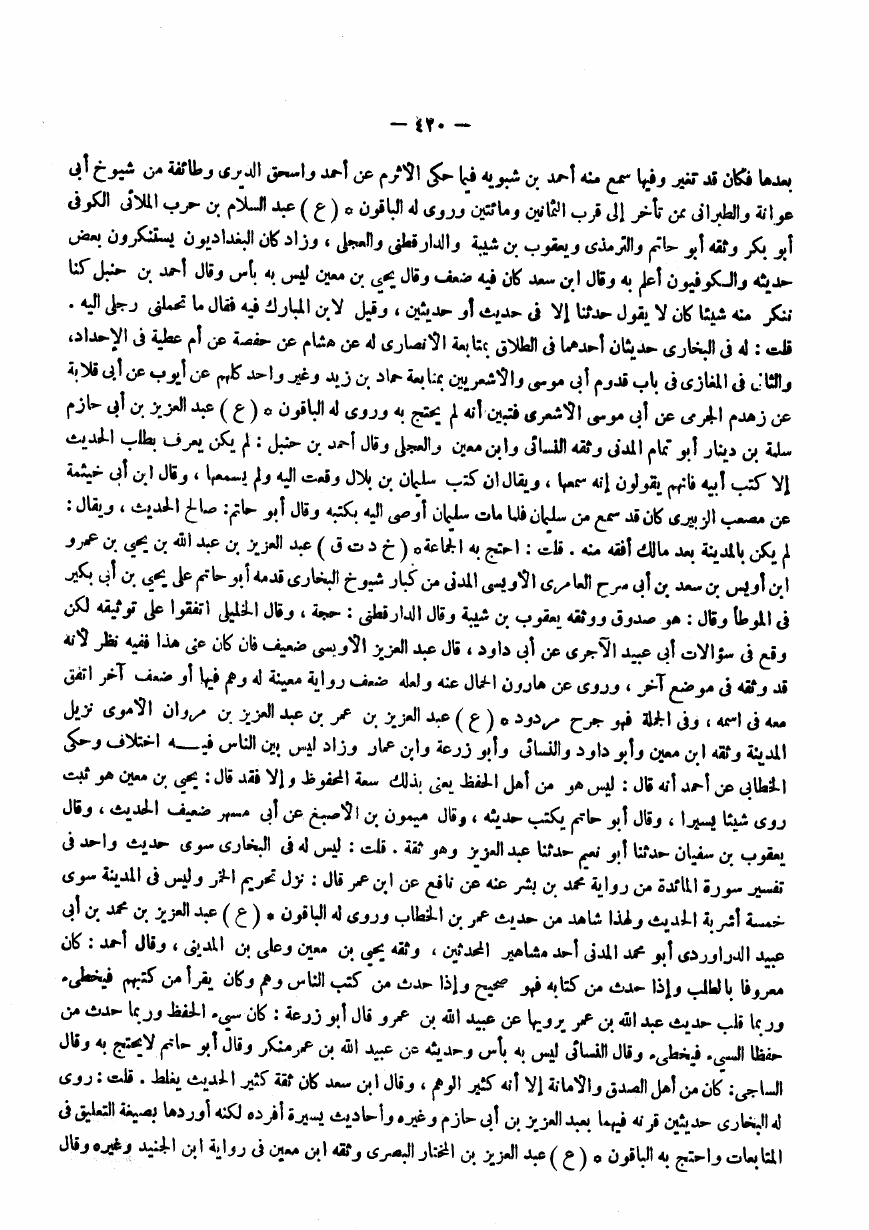 — ٤٢٠ —
بعدها فكان قد تغير وفيها سمع منه أحمد بن شبويه فيما حكى الأثرم عن أحمد واسحق الدبرى وطائفة من شيوخ أبى
عوانة والطبرانى ممن تأخر إلى قرب الثمانين ومائتين وروى له الباقون * ( ع ) عبد السلام بن حرب الملائى الكوفى
أبو بكر وثقه أبو حاتم والترمذى ويعقوب بن شيبة والدارقطنى والعجلى ، وزاد كان البغداديون يستنكرون بعض
حديثه والكوفيون أعلم به وقال ابن سعد كان فيه ضعف وقال يحيى بن معين ليس به بأس وقال أحمد بن حنبل كنا
ننكر منه شيئا كان لا يقول حدثنا إلا فى حديث أو حديثين ، وقيل لابن المبارك فيه فقال ما تحملنى رجلى اليه .
قلت : له فى البخارى حديثان أحدهما فى الطلاق بمتابعة الأنصارى له عن هشام عن حفصة عن أم عطية فى الإحداد،
والثانى فى المغازى فى باب قدوم أبى موسى والأشعريين بمتابعة حماد بن زيد وغير واحد كلهم عن أيوب عن أبى قلابة
عن زهدم الجرمى عن أبى موسى الأشعرى فتبين أنه لم يحتج به وروى له الباقون * ( ع ) عبد العزيز بن أبى حازم
سلمة بن دينار أبو تمام المدنى وثقه النسائى وابن معين والعجلى وقال أحمد بن حنبل : لم يكن يعرف بطلب الحديث
إلا كتب أبيه فانهم يقولون إنه سمعها ، ويقال ان كتب سليمان بن بلال وقعت اليه ولم يسمعها ، وقال ابن أبى خيثمة
عن مصعب الزبيرى كان قد سمع من سليمان فلما مات سليمان أوصى اليه بكتبه وقال أبو حاتم: صالح الحديث ، ويقال :
لم يكن بالمدينة بعد مالك أفقه منه . قلت : احتج به الجماعة * ( خ د ت ق ) عبد العزيز بن عبد الله بن يحيى بن عمرو
ابن أويس بن سعد بن أبى سرح العامرى الأويسى المدنى من كبار شيوخ البخارى قدمه أبو حاتم على يحيى بن أبى بكير
فى الموطأ وقال : هو صدوق ووثقه يعقوب بن شيبة وقال الدارقطنى : حجة ، وقال الخليلى اتفقوا على توثيقه لكن
وقع فى سؤالات أبى عبيد الآجرى عن أبى داود ، قال عبد العزيز الأويسى ضعيف فان كان عنى هذا ففيه نظر لأنه
قد وثقه فى موضع آخر ، وروى عن هارون الحمال عنه ولعله ضعف رواية معينة له وهم فيها أو ضعف آخر اتفق
معه فى اسمه ، وفى الجملة فهو جرح مردود * ( ع ) عبد العزيز بن عمر بن عبد العزيز بن مروان الأموى نزيل
المدينة وثقه ابن معين وأبو داود والنسائى وأبو زرعة وابن عمار وزاد ليس بين الناس فيـــه اختلاف وحكى
الخطابى عن أحمد أنه قال : ليس هو من أهل الحفظ يعنى بذلك سعة المحفوظ وإلا فقد قال : يحيى بن معين هو ثبت
روى شيئا يسيرا ، وقال أبو حاتم يكتب حديثه ، وقال ميمون بن الأصبغ عن أبى مسهر ضعيف الحديث ، وقال
يعقوب بن سفيان حدثنا أبو نعيم حدثنا عبد العزيز وهو ثقة . قلت : ليس له فى البخارى سوى حديث واحد فى
تفسير سورة المائدة من رواية محمد بن بشر عنه عن نافع عن ابن عمر قال : نزل تحريم الخمر وليس فى المدينة سوى
خمسة أشربة الحديث ولهذا شاهد من حديث عمر بن الخطاب وروى له الباقون * ( ع ) عبد العزيز بن محمد بن أبى
عبيد الدراوردى أبو محمد المدنى أحد مشاهير المحدثين ، وثقه يحيى بن معين وعلى بن المدينى ، وقال أحمد : كان
معروفا بالطلب وإذا حدث من كتابه فهو صحيح وإذا حدث من كتب الناس وهم وكان يقرأ من كتبهم فيخطىء
وربما قلب حديث عبد الله بن عمر يرويها عن عبيد الله بن عمرو قال أبو زرعة : كان سىء الحفظ وربما حدث من
حفظا السىء فيخطىء وقال النسائى ليس به بأس وحديثه عن عبيد الله بن عمر منكر وقال أبو حاتم لا يحتج به وقال
الساجى: كان من أهل الصدق والأمانة إلا أنه كثير الوهم ، وقال ابن سعد كان ثقة كثير الحديث يغلط . قلت : روى
له البخارى حديثين قرنه فيهما بعبد العزيز بن أبى حازم وغيره وأحاديث يسيرة أفرده لكنه أوردها بصيغة التعليق فى
المتابعات واحتج به الباقون * ( ع ) عبد العزيز بن المختار البصرى وثقه ابن معين فى رواية ابن الجنيد وغيره وقال